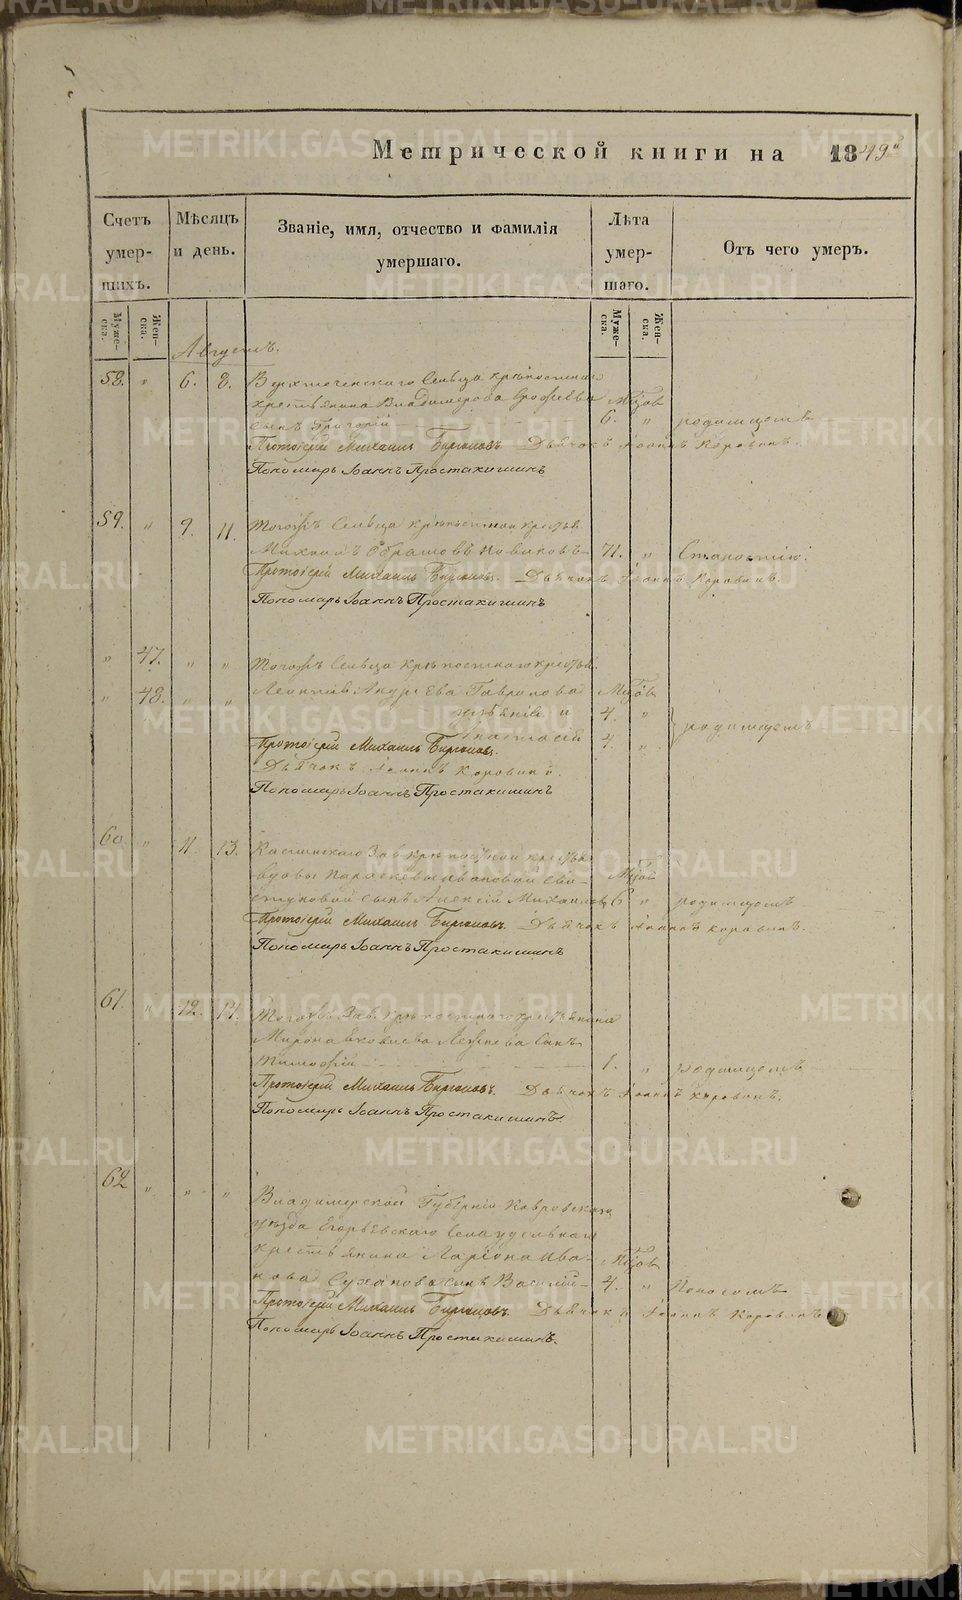 Метрической книги на 1849й
Счетъ умер- шихъ.
Мѣсяцъ и день.
Званіе, имя, отчество и фамилія умершаго.
Лѣта умер- шаго.
Отъ чего умеръ.
Муже- ска.
Жен- ска.
Муже- ска.
Жен- ска.
Августъ.
58. " 6. 8. Верхтеченскаго Сельца крѣпостнаго
крестьянина Владимерова Ерофеева Мцов
сынъ Григорій 6. " родимцемъ
Протоіерей Михаилъ Бирюковъ. Дьячокъ Іоаннъ Коровинъ.
Пономарь Іоаннъ Простакишинъ
59. " 9. 11. Тогожъ Сельца крѣпостной крестья
Михаилъ Новиковъ 71. " Старостію.
Протоіерей Михаилъ Бирюковъ. Дьячокъ Іоаннъ Коровинъ.
Пономарь Іоаннъ Простакишинъ
" 47. " " Тогожъ Сельца крѣпостнаго крестья
" 48. " " Леонтія Андреева Гаврилова Мцов
и 4. "
Анастасія 4. " родимцемъ
Протоіерей Михаилъ Бирюковъ.
Дьячокъ Іоаннъ Коровинъ.
Пономарь Іоаннъ Простакишинъ
60 " 11. 13. Каслинскаго Зав крѣпостной крестьян
вдовы Параскевы Ивановой Сви- Мцов
стуновой сынъ Алексій Михаиловъ 6 " родимцемъ
Протоіерей Михаилъ Бирюковъ. Дьячокъ Іоаннъ Коровинъ.
Пономарь Іоаннъ Простакишинъ
61. " 12. 14. Тогожъ Зав. крѣпостнаго крестьянина
Мирона Яковлева Сынъ
Тимофій 1. " родимцемъ
Протоіерей Михаилъ Бирюковъ. Дьячокъ Іоаннъ Коровинъ.
Пономарь Іоаннъ Простакишинъ.
62 " " " Владимерской Губерніи Ковровскаго
уѣзда Егорьевскаго Села удельнаго
крестьянина Ларіона Ива- Мцов
нова Суханова сынъ Василій 4. " Поносомъ
Протоіерей Михаилъ Бирюковъ. Дьячокъ Іоаннъ Коровинъ
Пономарь Іоаннъ Простакишинъ.
METRIKI.GASO-URAL.RU